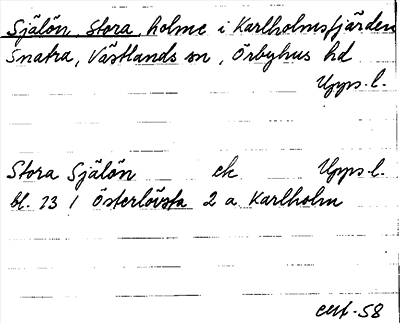 Själön, Stora, holme i Karlholmsfjärden
Snatra, Västlands sn, Örbyhus hd
Upps. l.
Stora Själön ek Upps. l.
bl. 73 / Österlövsta 2 a Karlholm
-58